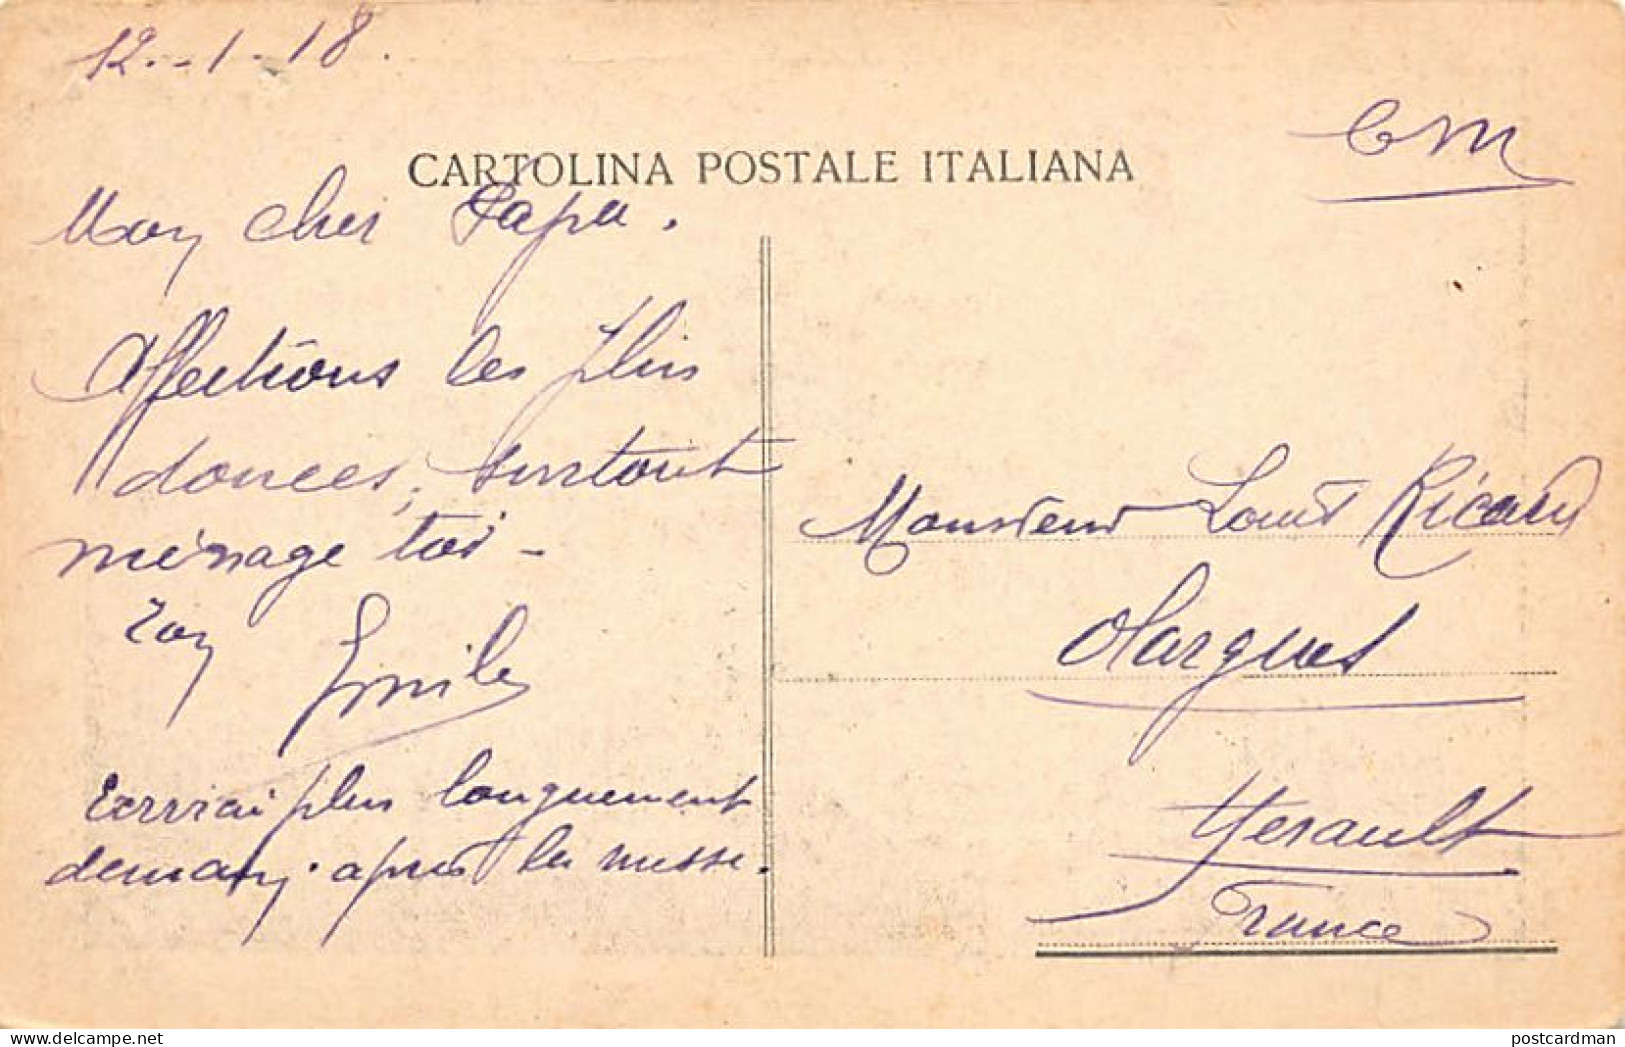 12-1-18.
CM
CARTOLINA POSTALE ITALIANA
Mon cher Papa.
Affections les plus
douces, surtout
ménage toi -
Ton Emile
Ecrirai plus longuement
demain. après la messe.
Monsieur Louis Ricard
Olargues
Herault
France
postcardman